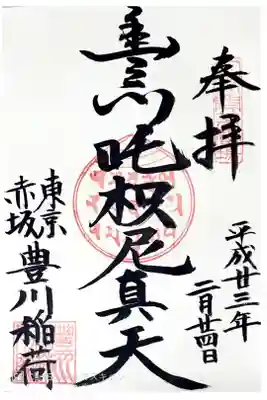 奉拝
平成廿三年
二月廿四日
豊川吒枳尼真天
東京
赤坂
豊川稲荷